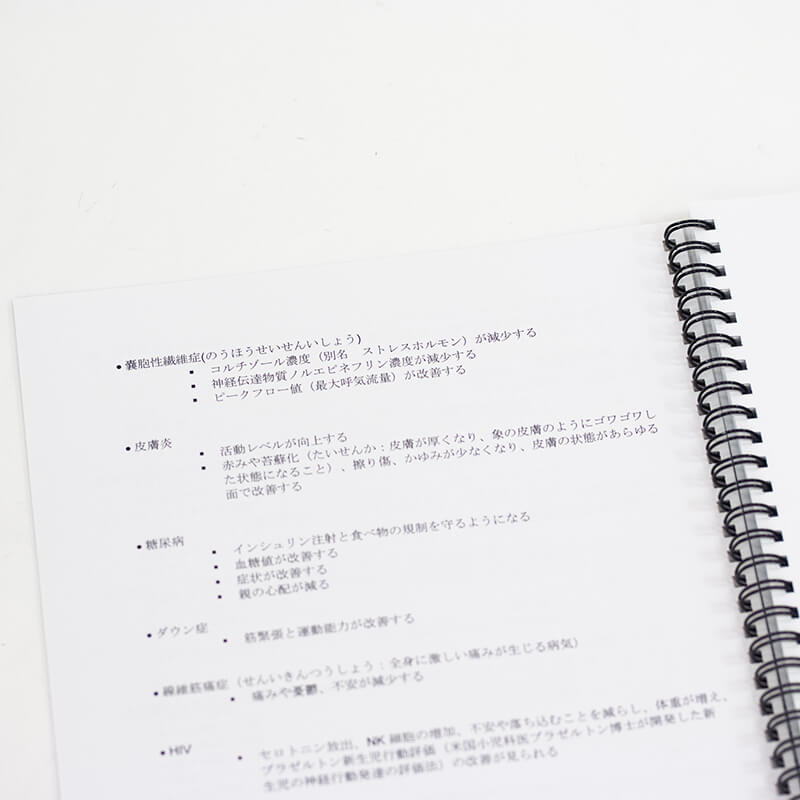 •嚢胞性繊維症(のうほうせいせんいしょう)
▪ コルチゾール濃度（別名　ストレスホルモン）が減少する
▪ 神経伝達物質ノルエピネフリン濃度が減少する
▪ ピークフロー値（最大呼気流量）が改善する
•皮膚炎
▪ 活動レベルが向上する
▪ 赤みや苔蘚化（たいせんか：皮膚が厚くなり、象の皮膚のようにゴワゴワし
た状態になること）、擦り傷、かゆみが少なくなり、皮膚の状態があらゆる
面で改善する
•糖尿病
▪ インシュリン注射と食べ物の規制を守るようになる
▪ 血糖値が改善する
▪ 症状が改善する
▪ 親の心配が減る
•ダウン症
▪ 筋緊張と運動能力が改善する
•線維筋痛症（せんいきんつうしょう：全身に激しい痛みが生じる病気）
▪ 痛みや憂鬱、不安が減少する
•HIV
▪ セロトニン放出、NK 細胞の増加、不安や落ち込むことを減らし、体重が増え、
ブラゼルトン新生児行動評価（米国小児科医ブラゼルトン博士が開発した新
生児の神経行動発達の評価法）の改善が見られる